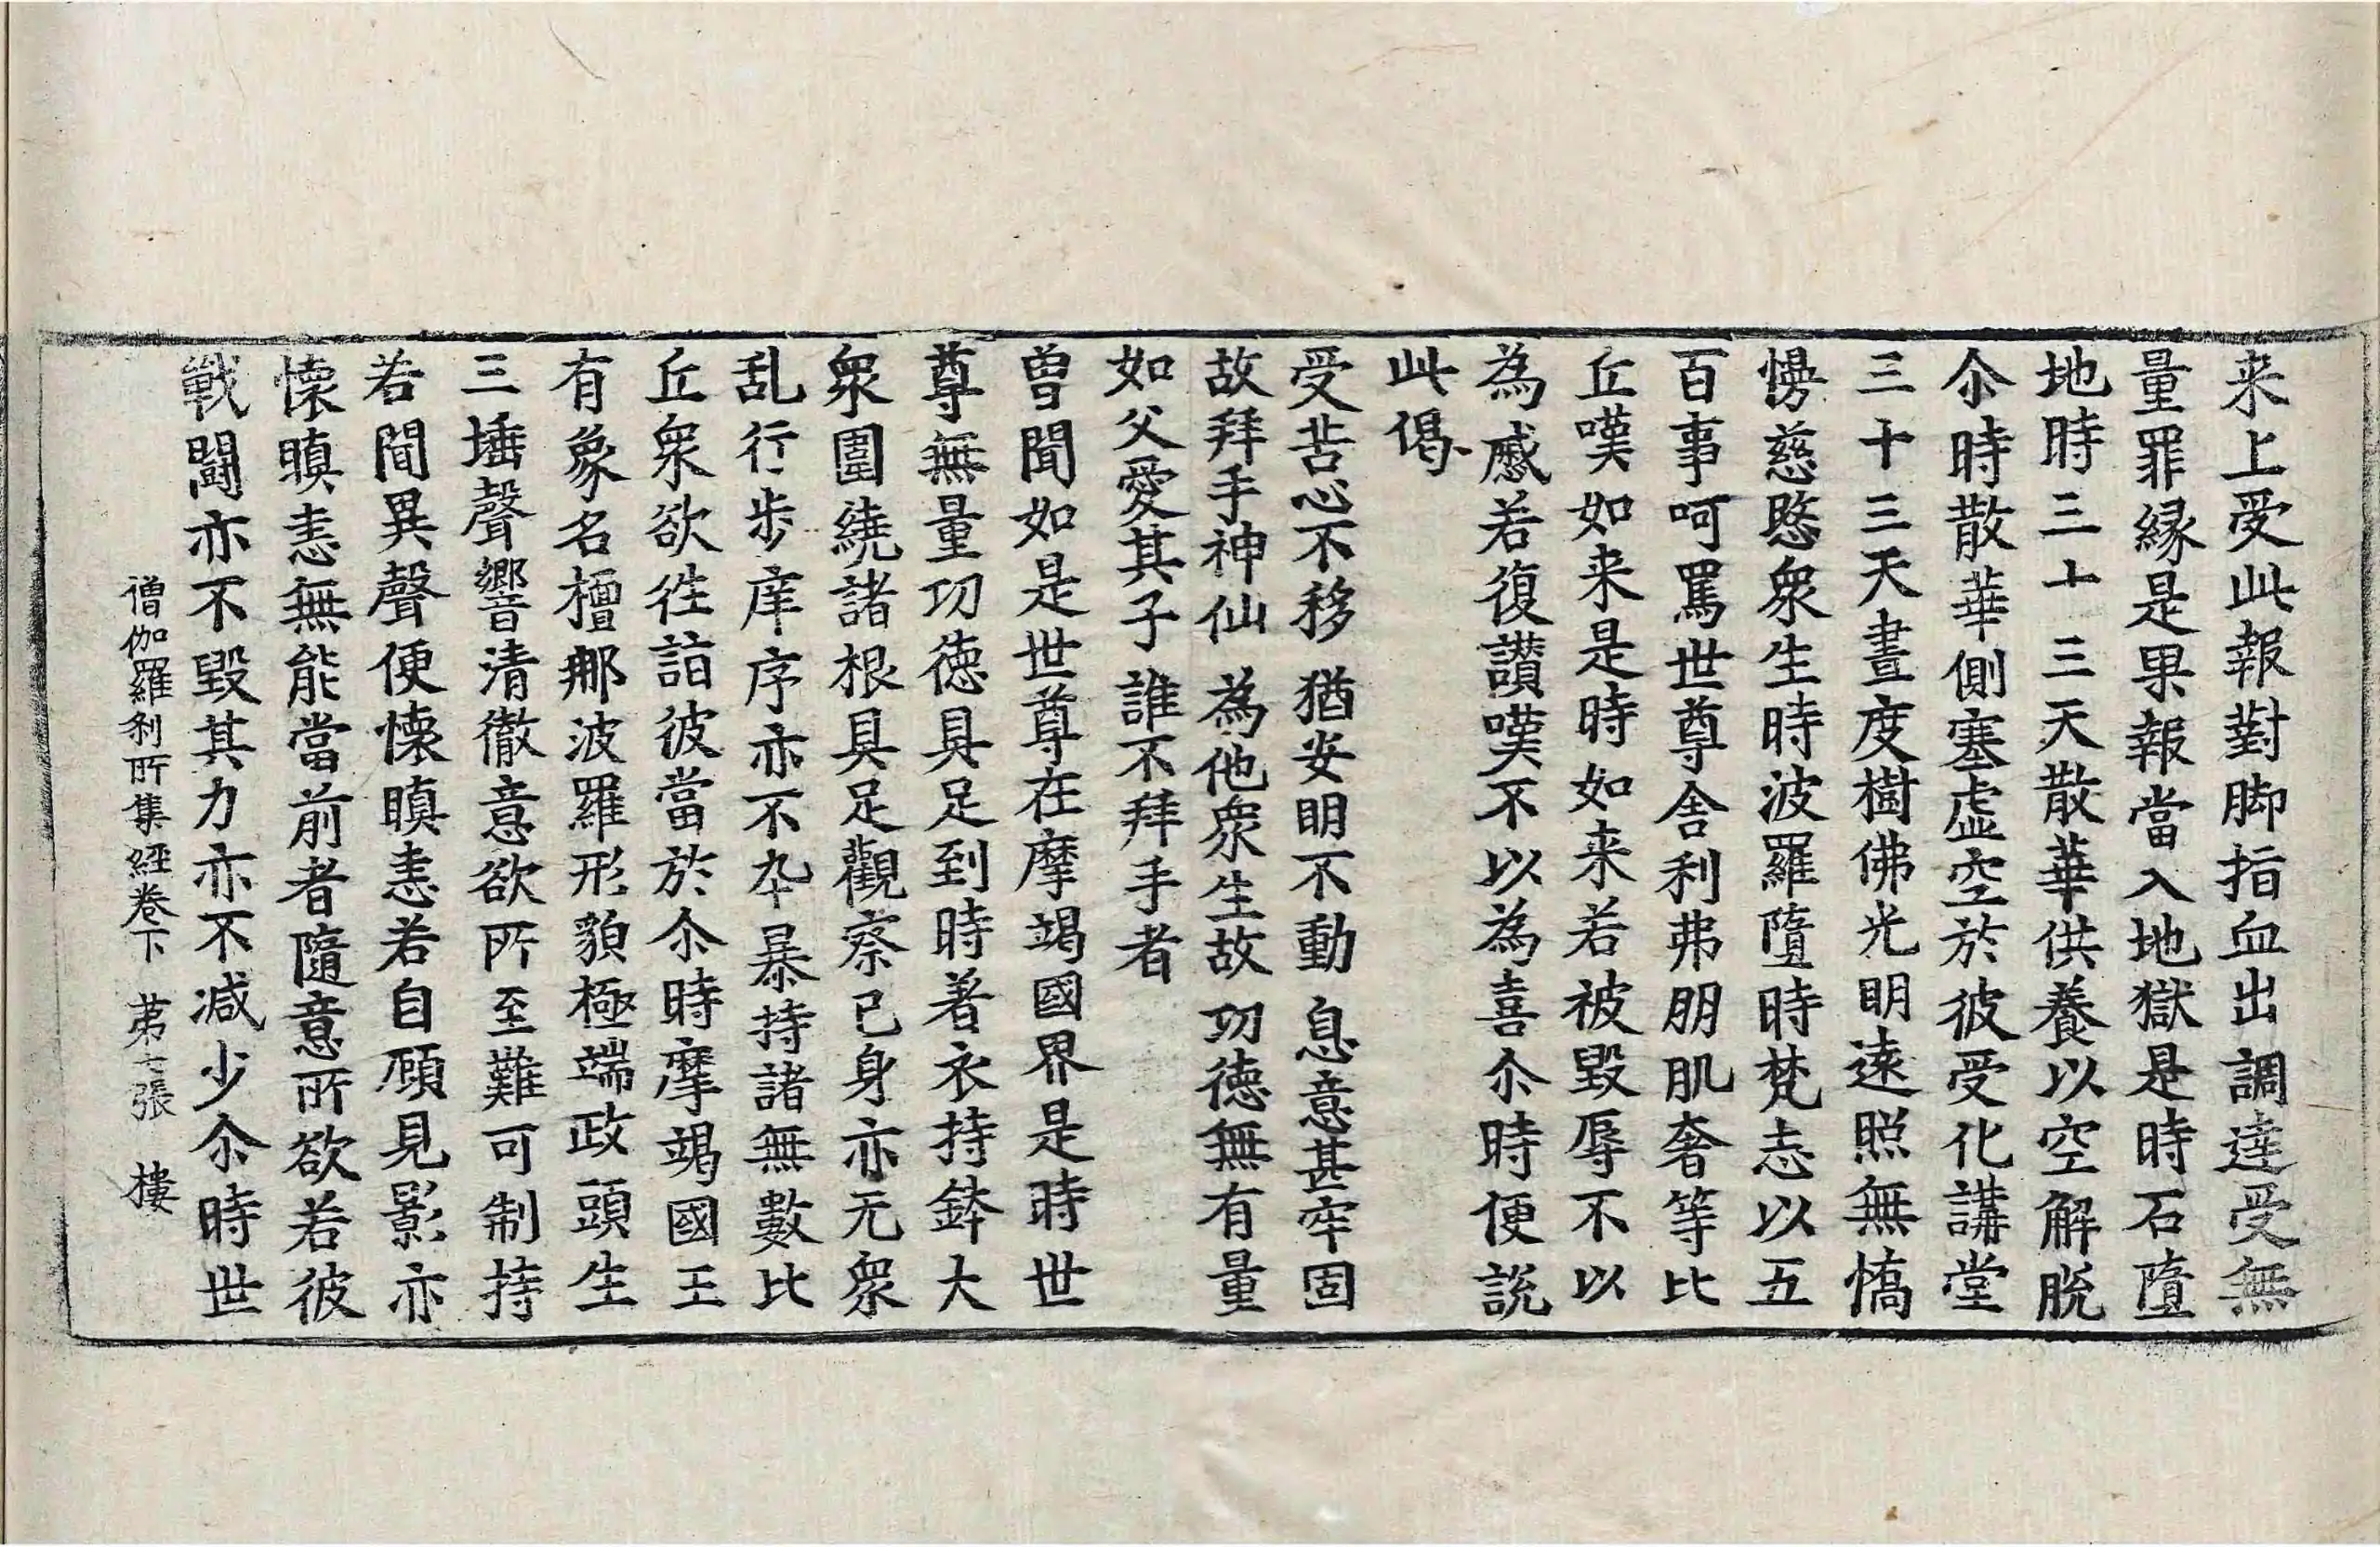 来上受此報對脚指血出調達受無
量罪緣是果報當入地獄是時石墮
地時三十三天散華供養以空解脫
尒時散華側塞虛空於彼受化講堂
三十三天晝度樹佛光明遠照無憍
慢慈愍衆生時波羅墮時梵志以五
百事呵罵世尊舍利弗朋肌奢等比
丘嘆如来是時如来若被毀辱不以
為慼若復讃嘆不以為喜尒時便說
此偈
受苦心不移 猶安明不動 息意甚牢固
故拜手神仙 為他衆生故 功徳無有量
如父愛其子 誰不拜手者
曽聞如是世尊在摩竭國界是時世
尊無量功徳具足到時著衣持鉢大
衆圍繞諸根具足觀察已身亦无衆
乱行步庠序亦不卒暴持諸無數比
丘衆欲徃詣彼當於尒時摩竭國王
有象名檀那波羅形貌極端政頭生
三埵聲響清徹意欲所至難可制持
若聞異聲便懷瞋恚若自顧見影亦
懷瞋恚無能當前者隨意所欲若彼
戰闘亦不毀其力亦不减少尒時世
僧伽羅刹所集經卷下 苐七張 樓